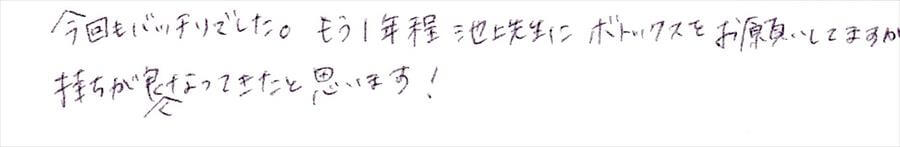 今回もバッチリでした。もう1年程池上先生にボトックスをお願いしてますが
持ちが良くなってきたと思います！